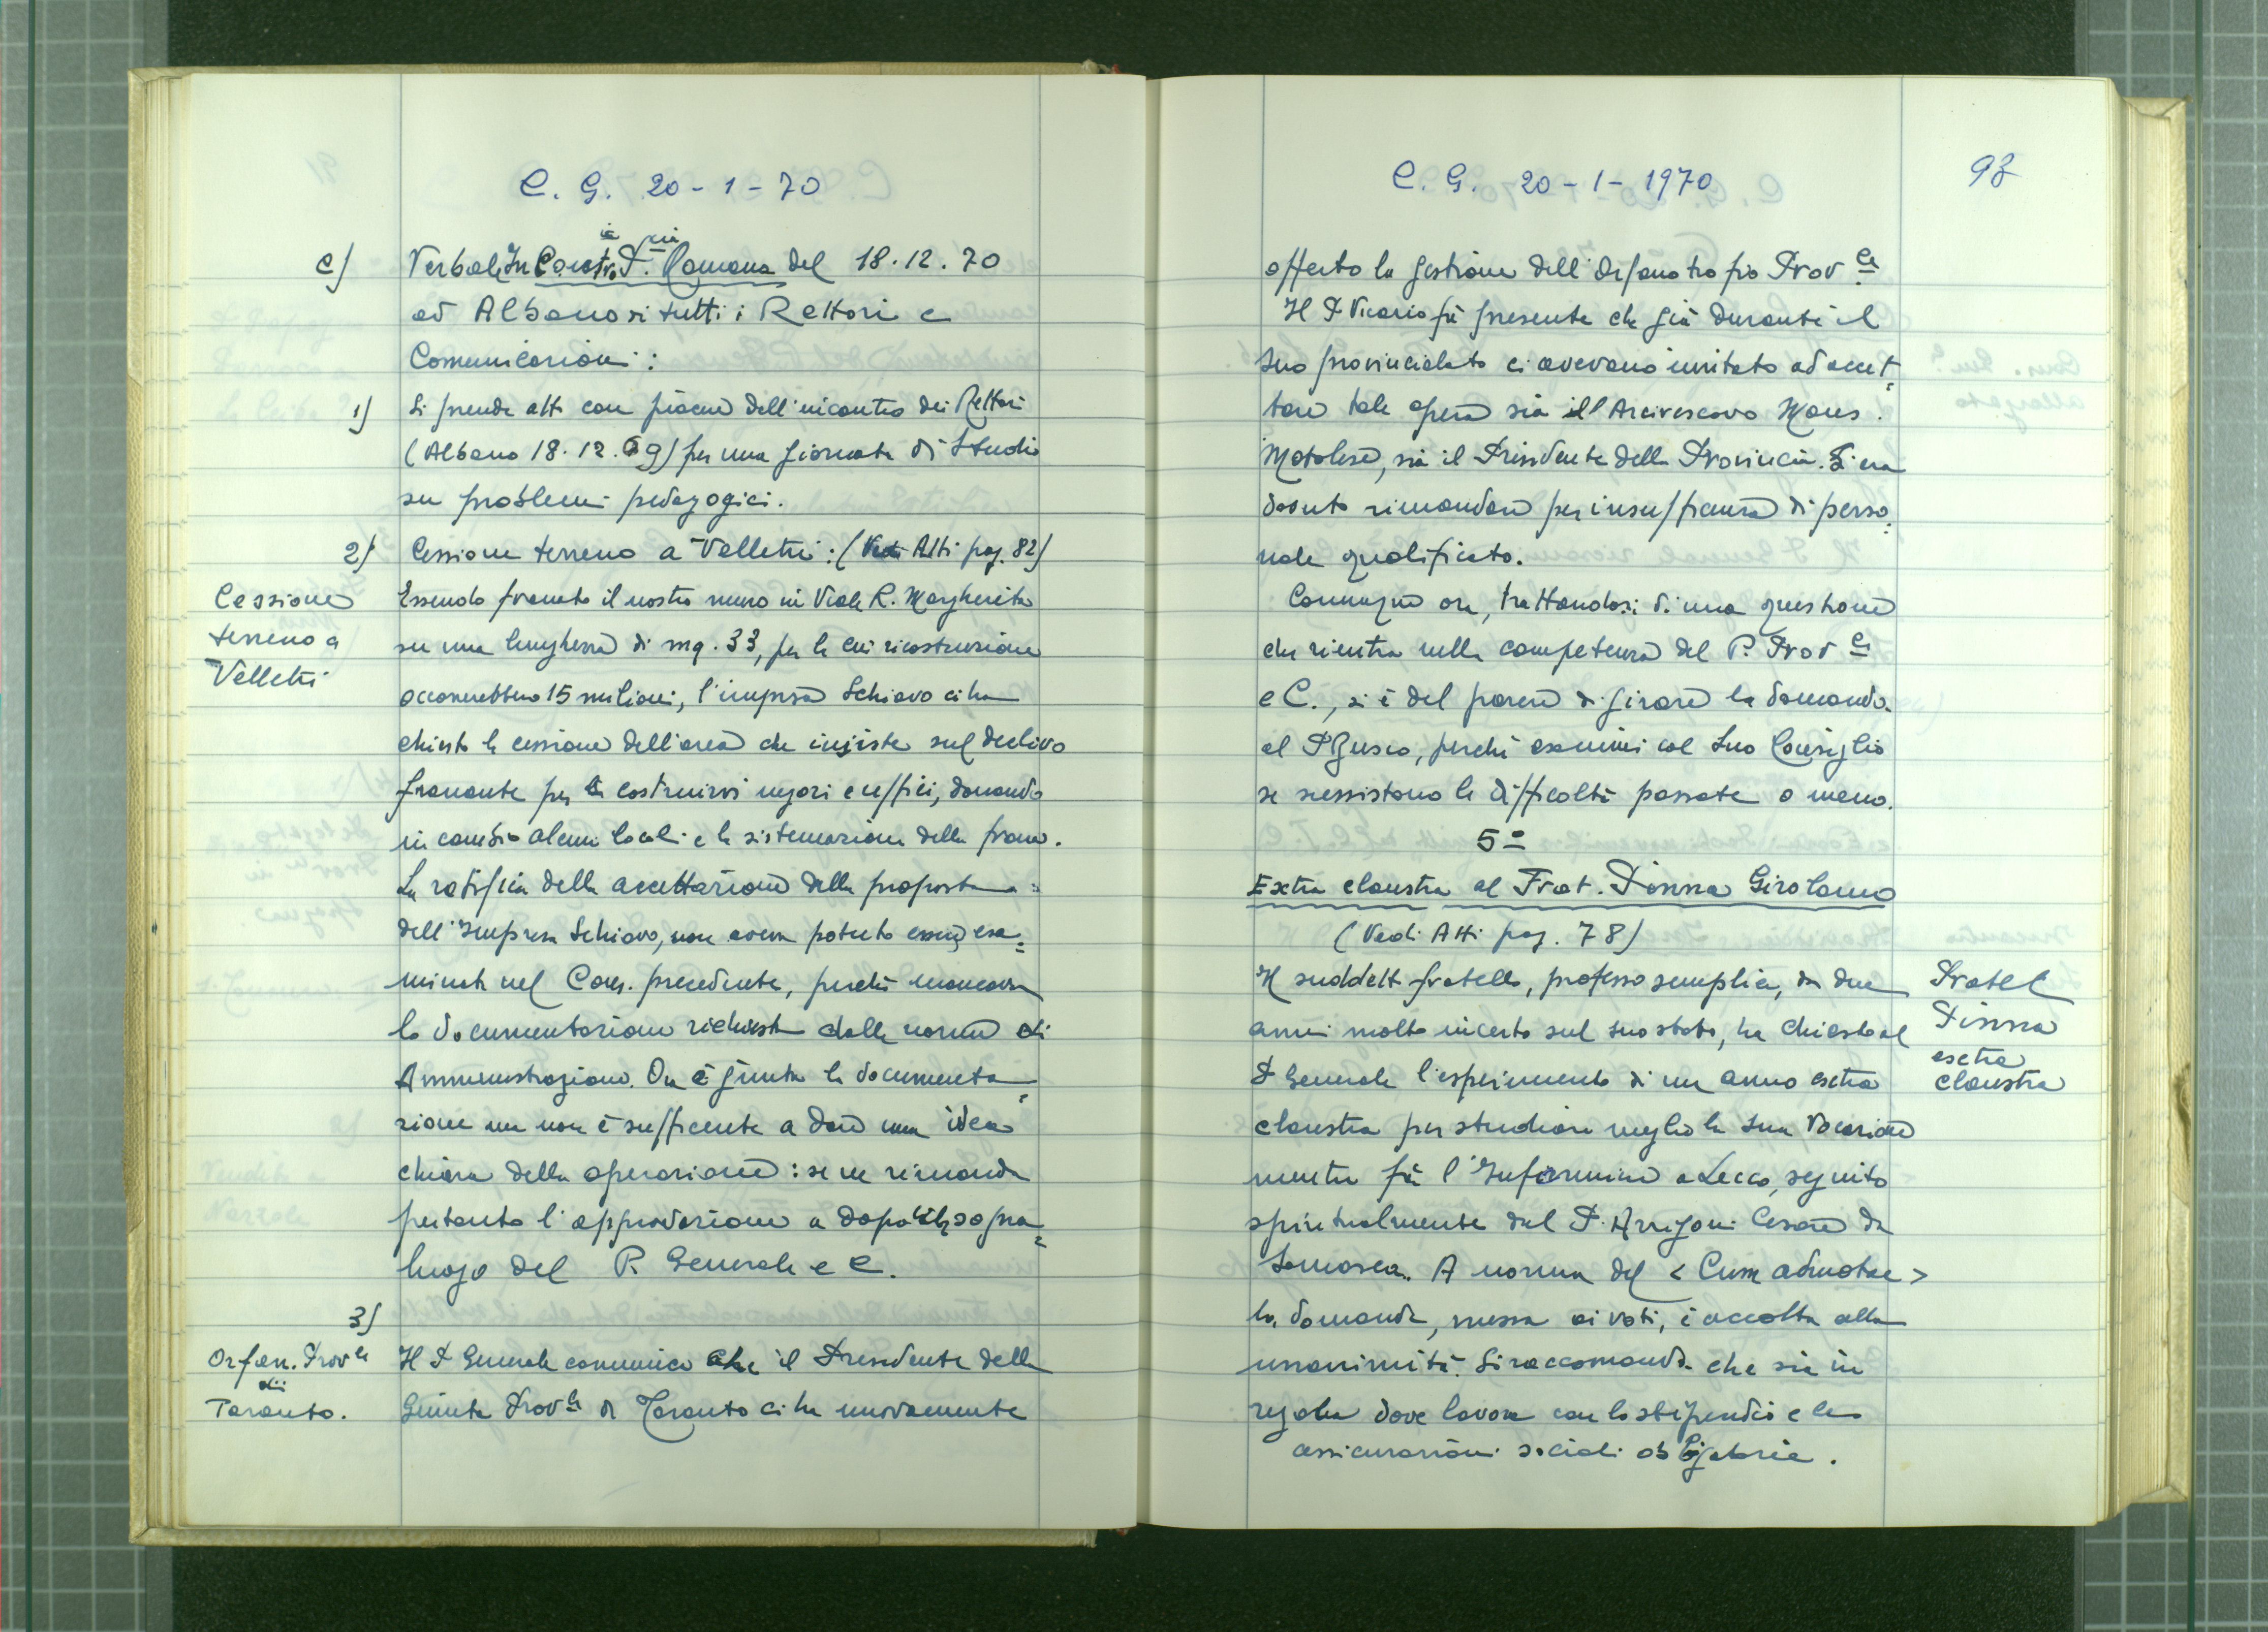 C. G. 20-1-70
c) Verbale Incontro P.cia Romana del 18.12.70
ad Albano di tutti i Rettori e
Comunicazioni:
1) Si prende atto con piacere dell'incontro dei Rettori
(Albano 18.12.69) per una giornata di Studio
su problemi pedagogici.
2) Cessione terreno a Velletri: (Vedi Atti pag. 82)
Cessione
terreno a
Velletri
Essendo franato il nostro muro in Viale R. Margherita
su una lunghezza di mq. 33, per la cui ricostruzione
occorrerebbero 15 milioni, l'impresa Schiavo ci ha
chiesto la cessione dell'area che insiste sul declivo
franante per costruirvi negozi e uffici, donando
in cambio alcuni locali e la sistemazione della frana.
La ratifica della accettazione della proposta
dell'Impresa Schiavo, non aveva potuto essere esa=
minata nel Cons. precedente, perchè mancava
la documentazione richiesta dalle norme di
Amministrazione. Ora è giunta la documenta=
zione ma non è sufficente a dare una idea
chiara della operazione: se ne rimanda
pertanto l'approvazione a dopo il sopra=
luogo del P. Generale e C.
3)
Orfan. Prov.le
di
Taranto.
Il P. Generale comunica che il Presidente della
Giunta Prov.le di Taranto ci ha nuovamente
C. G. 20-1-1970
93
offerto la gestione dell'Orfanotrofio Prov.le
Il P. Vicario fa presente che già durante il
suo provincialato ci avevano invitato ad accet=
tare tale opera sia l'Arcivescovo Mons.
Motolese, sia il Presidente della Provincia. Si era
dovuto rimandare per insufficienza di perso=
nale qualificato.
Comunque ora, trattandosi di una questione
che rientra nella competenza del P. Prov.le
e C., si è del parere di girare la domanda
al P. Busco, perchè esamini col suo Consiglio
se sussistono le difficoltà passate o meno.
5°
Extra claustra al Frat. Pinna Girolamo
(Vedi Atti pag. 78)
Fratel
Pinna
extra
claustra
Il suddetto fratello, professo semplice, da due
anni molto incerto sul suo stato, ha chiesto al
P. Generale l'esperimento di un anno extra
claustra per studiare meglio la sua vocazione
mentre fa l'Infermiere a Lecco, seguito
spiritualmente dal P. Arrigoni Cesare da
Somasca. A norma del <Cum admotae>
la domanda, messa ai voti, è accolta alla
unanimità. Si raccomanda che sia in
regola dove lavora con lo stipendio e le
assicurazioni sociali obbligatorie.